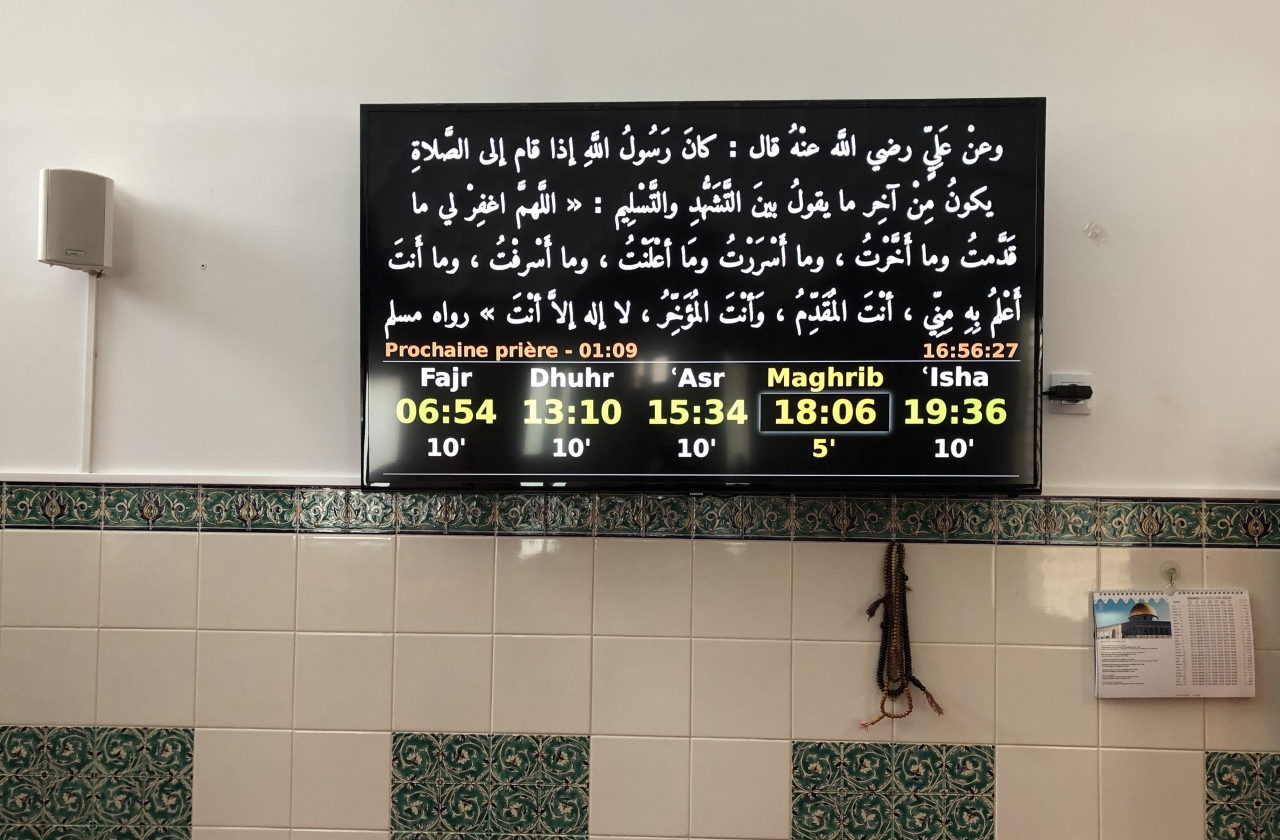 وعنْ عَلِيٍّ رضي اللَّه عنْهُ قال : كانَ رَسُولُ اللَّهِ إذا قام إلى الصَّلاةِ
يكونُ مِنْ آخِر ما يقولُ بينَ التَّشَهُّدِ والتَّسْلِيم : « اللَّهمَّ اغفِرْ لي ما
قَدَّمتُ وما أَخَّرْتُ ، وما أَسْرَرْتُ ومَا أعْلَنْتُ ، وما أَسْرفْتُ ، وما أَنتَ
أَعْلمُ بِهِ مِنِّي ، أنْتَ المُقَدِّمُ ، وَأنْتَ المُؤَخِّرُ ، لا إله إلاَّ أنْتَ » رواه مسلم
Prochaine prière - 01:09 16:56:27
Fajr Dhuhr ʿAsr Maghrib ʿIsha
06:54 13:10 15:34 18:06 19:36
10' 10' 10' 5' 10'
SAMSUNG